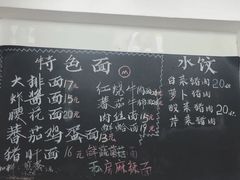 特色面
水饺
大排面17元
炸酱面15元
腰花面20元
番茄鸡蛋面13元
猪肝面16元
红烧牛肉面
番茄牛肉面
肉丝面
鲜蔬菌菇面
私房麻辣面
白菜猪肉20元
萝卜猪肉
酸菜猪肉20元
芹菜猪肉